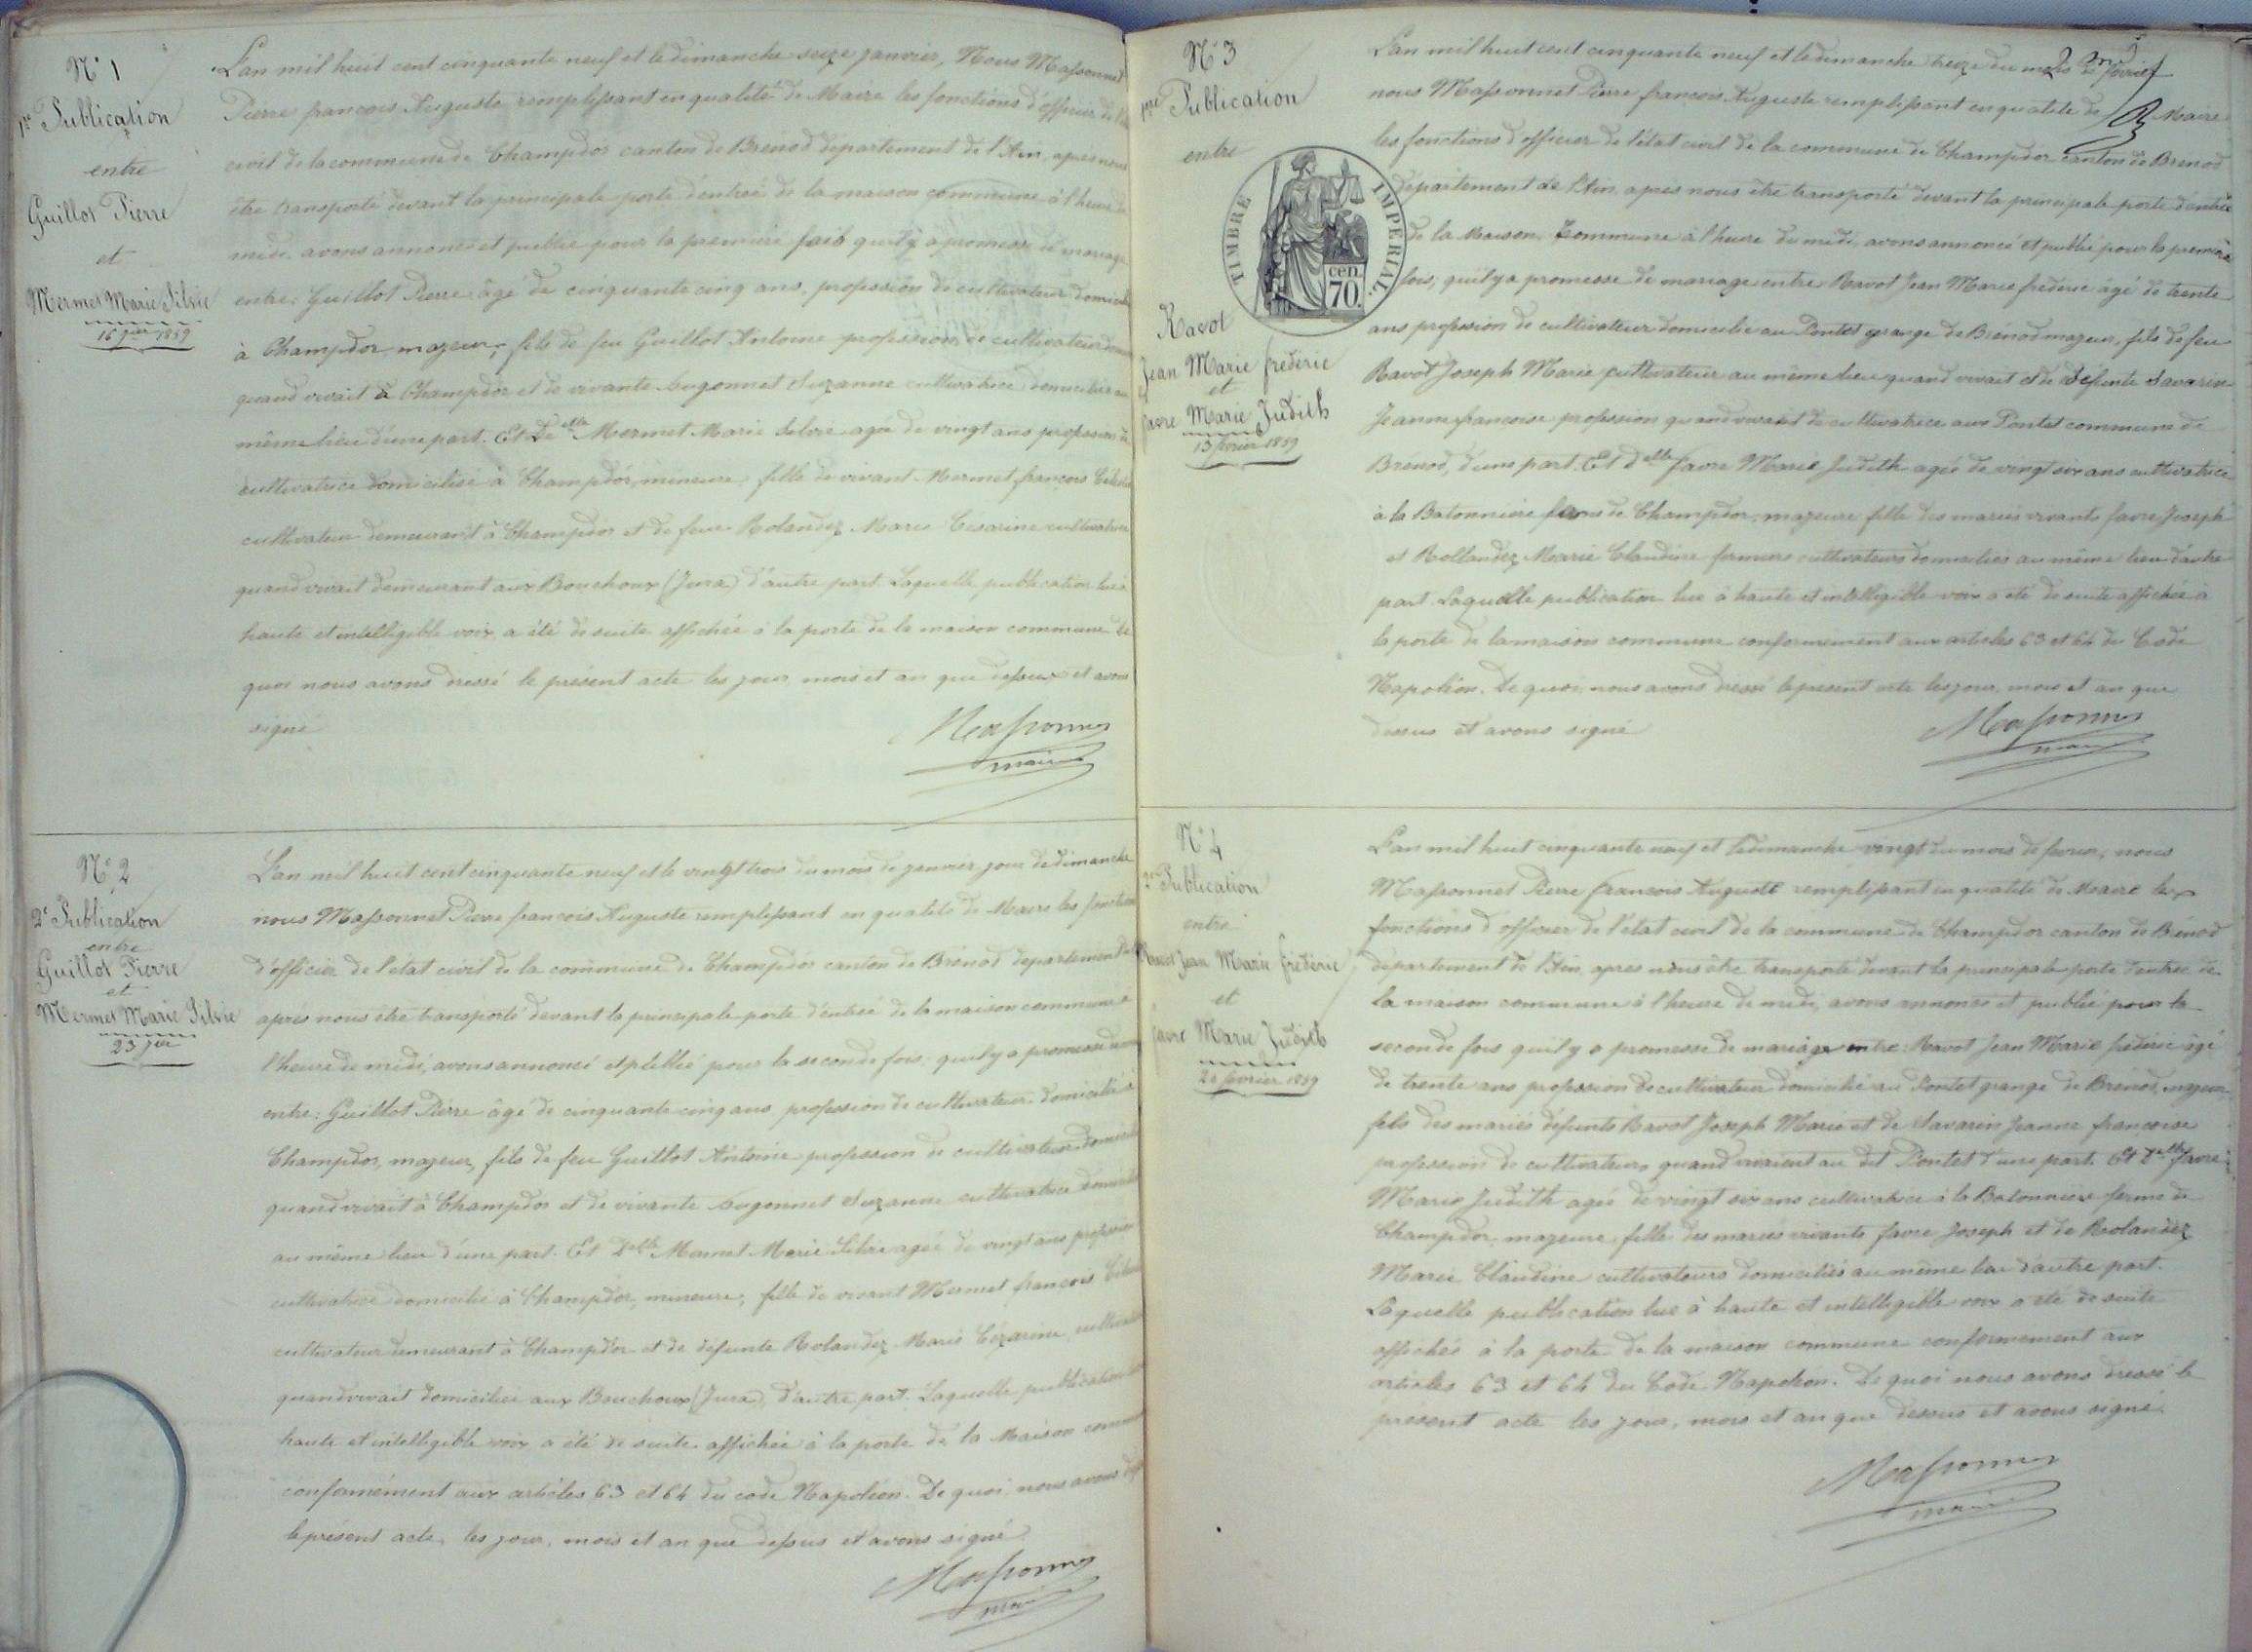 N° 1
1re Publication
entre
Guillot Pierre
et
Mermet Marie Silvie
16 jer 1859
L'an mil huit cent cinquante neuf et le dimanche seize janvier, Nous Massonnet
Pierre francois Auguste remplissant en qualité de Maire les fonctions d'officier de
civil de la commune de Champdor canton de Brénod département de l'Ain, après nous
être transporté devant la principale porte d'entrée de la maison commune à l'heure de
midi avons annoncé et publié pour la première fois qu'il y a promesse de mariage
entre: Guillot Pierre âgé de cinquante cinq ans, profession de cultivateur
à Champdor, majeur, fils de feu Guillot Antoine profession de cultivateur
quand vivait à Champdor et de vivante Augonnet Suzanne cultivatrice domiciliée au
même lieu d'une part. Et Delle Mermet Marie Silvie agée de vingt ans profession de
cultivatrice domiciliée à Champdor, mineure, fille de vivant Mermet françois
cultivateur demeurant à Champdor et de feue Rolandez Marie Césarine cultivatrice
quand vivait demeurant aux Bouchoux (Jura) d'autre part. Laquelle publication lue à
haute et intelligible voix, a été de suite affichée à la porte de la maison commune De
quoi nous avons dressé le présent acte les jour mois et an que dessus et avons
signé
Massonnet
maire
N° 2
2e Publication
entre
Guillot Pierre
et
Mermet Marie Silvie
23 jer
L'an mil huit cent cinquante neuf et le vingt trois du mois de janvier jour de dimanche
nous Massonnet Pierre francois Auguste remplissant en qualité de Maire les fonctions
d'officier de l'état civil de la commune de Champdor canton de Brénod departement
après nous être transporté devant la principale porte d'entrée de la maison commune à
l'heure de midi, avons annoncé et publié pour la seconde fois: qu'il y a promesse
entre: Guillot Pierre âgé de cinquante cinq ans profession de cultivateur domicilié à
Champdor, majeur, fils de feu Guillot Antoine profession de cultivateur
quand vivait à Champdor et de vivante Augonnet Suzanne cultivatrice
au même lieu d'une part. Et Delle Mermet Marie Silvie agée de vingt ans profession
cultivatrice domicilié à Champdor, mineure, fille de vivant Mermet francois
cultivateur demeurant à Champdor et de défunte Rolandez Marie Cézarine
quand vivait domiciliée aux Bouchoux (Jura), d'autre part. Laquelle publication
haute et intelligible voix a été de suite affichée à la porte de la Maison
conformément aux articles 63 et 64 du code Napoléon. De quoi nous avons
le présent acte, les jour, mois et an que dessus et avons signé
Massonnet
maire
N° 3
1re Publication
entre
TIMBRE IMPERIAL.
cen.
70.
Ravot
Jean Marie frédéric
et
favre Marie Judith
13 fevrier 1859
L'an mil huit cent cinquante neuf et le dimanche treize du mois de fevrier
nous Massonnet Pierre francois Auguste remplissant en qualité de Maire
les fonctions d'officier de l'état civil de la commune de Champdor canton de Brénod
département de l'Ain après nous être transporté devant la principale porte d'entrée
de la Maison Commune à l'heure de midi, avons annoncé et publié pour la premiere
fois, qu'il y a promesse de mariage entre Ravot Jean Marie frederic agé de trente
ans profession de cultivateur domicilié au Pontet grange de Brénod majeur, fils de feu
Ravot Joseph Marie cultivateur au même lieu quand vivait et de défunte Savarin
Jeanne francoise profession quand vivait de cultivatrice aux Pontet commune de
Brénod, d'une part. Et Delle favre Marie Judith agée de vingt six ans cultivatrice
à la Batonniere ferme de Champdor, majeure fille des mariés vivants favre Joseph
et Rollandez Marie Claudine fermiers cultivateurs domiciliés au même lieu d'autre
part. Laquelle publication lue à haute et intelligible voix a été de suite affichée à
la porte de la maison commune conformement aux articles 63 et 64 du Code
Napoléon. De quoi nous avons dressé le present acte les jour, mois et an que
dessus et avons signé
Massonnet
maire
N° 4
2e Publication
entre
Ravot Jean Marie frédéric
et
favre Marie Judith
20 fevrier 1859
L'an mil huit cinquante neuf et le dimanche vingt du mois de fevrier, nous
Massonnet Pierre francois Auguste remplissant en qualité de Maire les
fonctions d'officier de l'état civil de la commune de Champdor canton de Brénod
département de l'Ain, apres nous être transporté devant la principale porte d'entrée de
la maison commune à l'heure de midi, avons annoncé et publié pour la
seconde fois qu'il y a promesse de mariage entre: Ravot Jean Marie frédéric âgé
de trente ans profession de cultivateur domicilié au Pontet grange de Brénod, majeur,
fils des mariés défunts Ravot Joseph Marie et de Savarin Jeanne francoise
profession de cultivateurs quand vivaient au dit Pontet d'une part. Et Delle favre
Marie Judith agée de vingt six ans cultivatrice à la Batonniere ferme de
Champdor, majeure, fille des mariés vivants favre Joseph et de Rolandez
Marie Claudine cultivateurs domiciliés au même lieu d'autre part.
Laquelle publication lue à haute et intelligible voix a été de suite
affichée à la porte de la maison commune conformement aux
articles 63 et 64 du Code Napoléon. De quoi nous avons dressé le
présent acte les jour, mois et an que dessus et avons signé.
Massonnet
maire